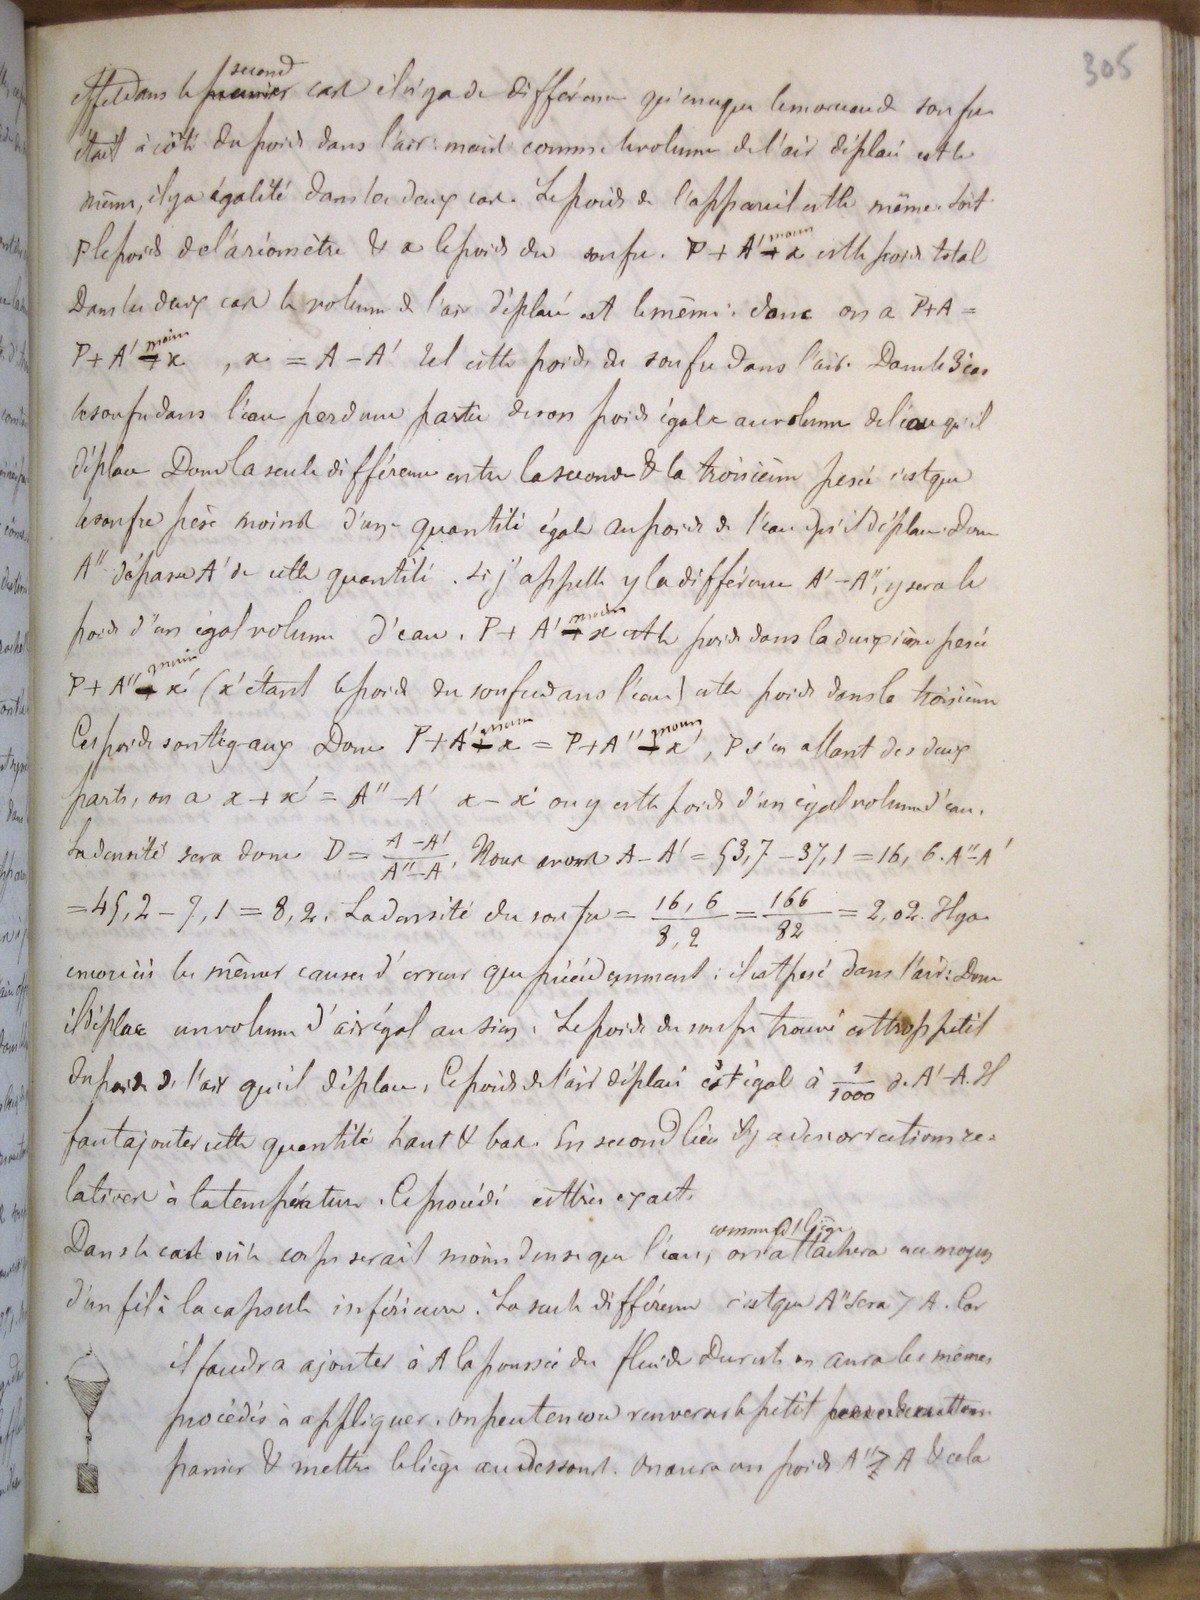 305
effet dans le premier second cas il n'y a de différence qu'en ce que le morceau de soufre
était à côté du poids dans l'air: mais comme le volume de l'air déplacé est le
même, il y a égalité dans les deux cas. Le poids de l'appareil est le même. Soit
P le poids de l'aréomètre & x le poids du soufre. P + A' + moins x est le poids total
Dans les deux cas le volume de l'air déplacé est le même: donc on a P+A =
P + A' + moins x , x = A - A' Tel est le poids du soufre dans l'air. Dans le 3e cas
le soufre dans l'eau perd une partie de son poids égale au volume de l'eau qu'il
déplace Donc la seule différence entre la seconde & la troisième pesée c'est que
le soufre pèse moins d'une quantité égale au poids de l'eau qu'il déplace. Donc
A'' dépasse A' de cette quantité. Si j'appelle y la différence A' - A'', y sera le
poids d'un égal volume d'eau. P + A' + moins x est le poids dans la deuxième pesée
P + A'' + moins x' (x' étant le poids du soufre dans l'eau) est le poids dans la troisième
Ces poids sont égaux Donc P + A' + moins x = P + A'' + moins x', P s'en allant des deux
parts, on a x + x' = A'' - A' x - x' ou y est le poids d'un égal volume d'eau.
La densité sera donc D = A - A' / A'' - A'. Nous avons A - A' = 53,7 - 37,1 = 16,6. A'' - A'
= 45,2 - 7,1 = 8,2. La densité du soufre = 16,6 / 8,2 = 166 / 82 = 2,02. Il y a
encore ici les mêmes causes d'erreur que précédemment: il est pesé dans l'air: Donc
il déplace un volume d'air égal au sien. Le poids du soufre trouvé est trop petit
du poids de l'air qu'il déplace. Ce poids de l'air déplacé est égal à 1/1000 de A' - A. Il
faut ajouter cette quantité haut & bas. En second lieu il y a des corrections re=
latives à la température. Ce procédé est très exact.
Dans le cas où le corps serait moins dense que l'eau, comme le liège on l'attachera au moyen
d'un fil à la capsule inférieure. La seule différence c'est que A'' sera > A. Car
il faudra ajouter à A la poussée du fluide Du reste on aura les mêmes
procédés à appliquer. On peut encore renverser le petit
panier & mettre le liège au dessous. On aura un poids A'' > A & cela